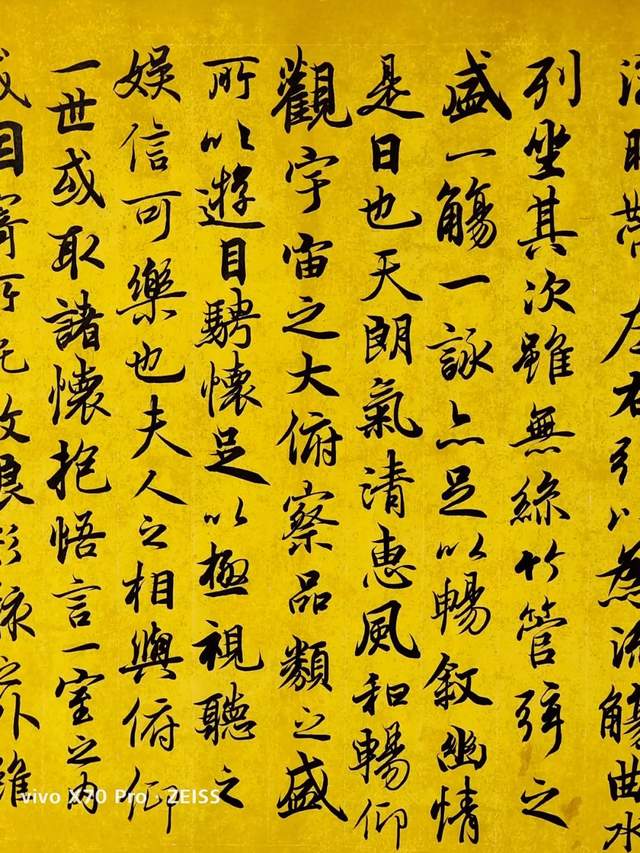 湍映帶左右引以為流觴曲水
列坐其次雖無絲竹管弦之
盛一觴一詠亦足以暢敘幽情
是日也天朗氣清惠風和暢仰
觀宇宙之大俯察品類之盛
所以遊目騁懷足以極視聽之
娛信可樂也夫人之相與俯仰
一世或取諸懷抱悟言一室之內
或因寄所託放浪形骸之外雖
vivo X70 Pro · ZEISS